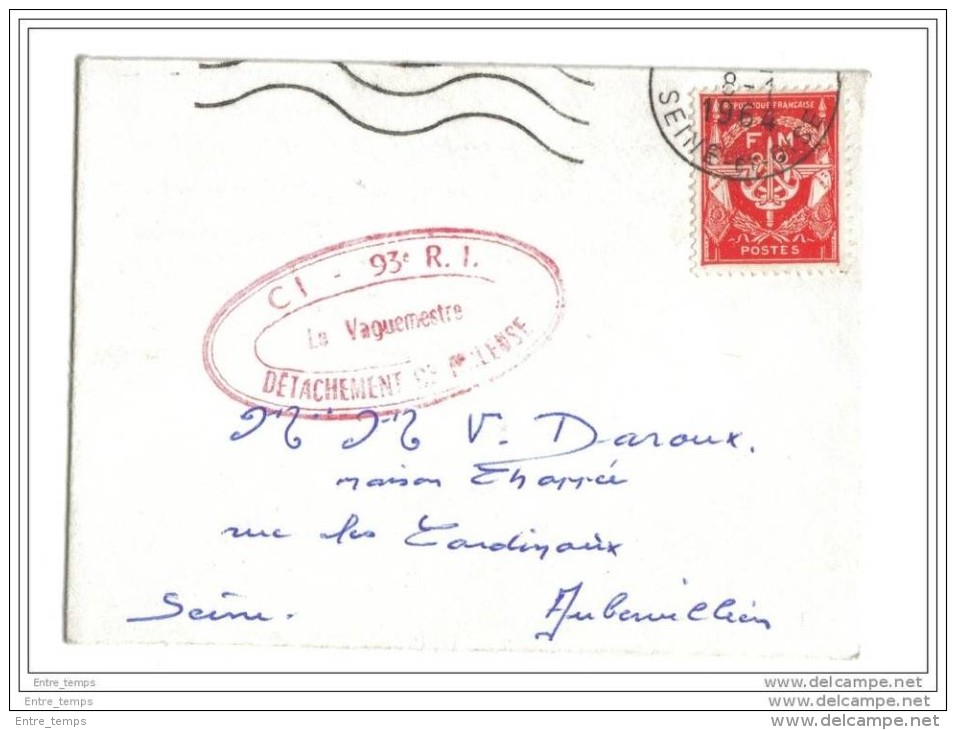 8-1
1964
SEINE-ET-OISE
RÉPUBLIQUE FRANÇAISE
F M
POSTES
CI - 93e R. I.
Le Vaguemestre
DÉTACHEMENT DE
Mr Mr V. Daroux.
maison Chappée
rue des Cardinaux
Seine. Aubervilliers
Entre_temps www.delcampe.net
Entre_temps www.delcampe.net
Entre_temps www.delcampe.net